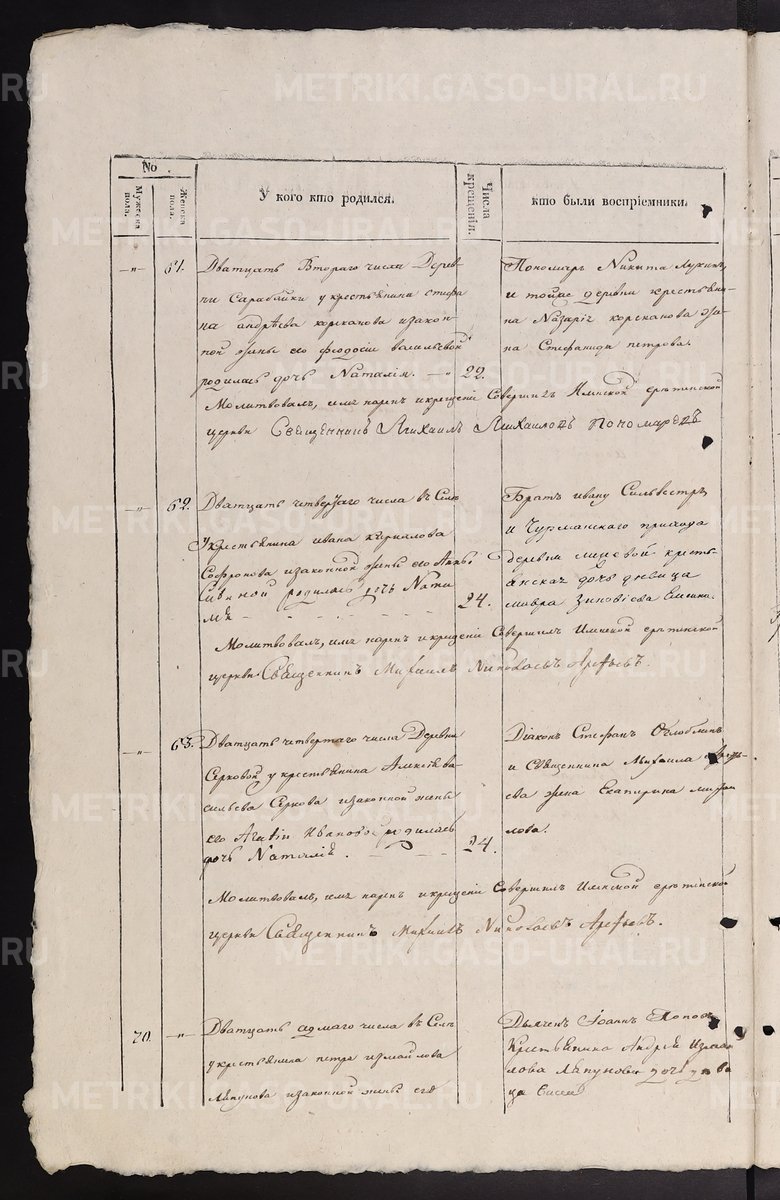 No
Мужеска пола.
Женска пола.
У кого кто родился.
Числа крещенія.
кто были воспріемники.
61.
Дватцать Втораго числа Дерев-
ни Сарабайки у крестьянина стефа
на андрѣева корекапова изакон-
ной жены его феодосіи васильевой
родилась дочь Наталія. 22.
Пономарь Никита Лукинъ
и тойже деревни крестьяни-
на Назарія корекапова же-
на Стефанида петрова.
Молитвовалъ, имя нарекъ и крещеніе Совершилъ срѣтенской
церкви Священникъ Михаилъ Михайловъ Пономаревъ
62.
Дватцать четвертаго числа въ Селе
Укрестьянина ивана кирилова
Софронова изаконной жены его Анны
родилась дочь Ната
лія 24.
Братъ ивану Сильвестръ
и прихода
деревни кресть-
янская дочь девица
мавра Зиновіева
Молитвовалъ, имя нарекъ и крещеніе Совершилъ срѣтенской
церкви Священникъ Михаилъ Николаевъ Арефьевъ.
63.
Дватцать четвертаго числа Деревни
Серковой у крестьянина Алексѣя ва-
сильева Серкова изаконной жены
его Агафіи Ивановой родилась
дочь Наталія. 24.
Діаконъ Стефанъ Оглоблинъ
и Священника Михаила Арефь-
ева жена Екатирина михаи
лова.
Молитвовалъ, имя нарекъ и крещеніе Совершилъ срѣтенской
церкви Священникъ Михаилъ Николаевъ Арефьевъ.
70.
Дватцать адмаго числа въ Селе
у крестьянина петра измайлова
Ляпунова изаконной жены его
Дьячекъ Іоаннъ Поповъ
Крестьянина Андрея Измаи
лова Ляпунова дочь деви
ца
METRIKI.GASO-URAL.RU